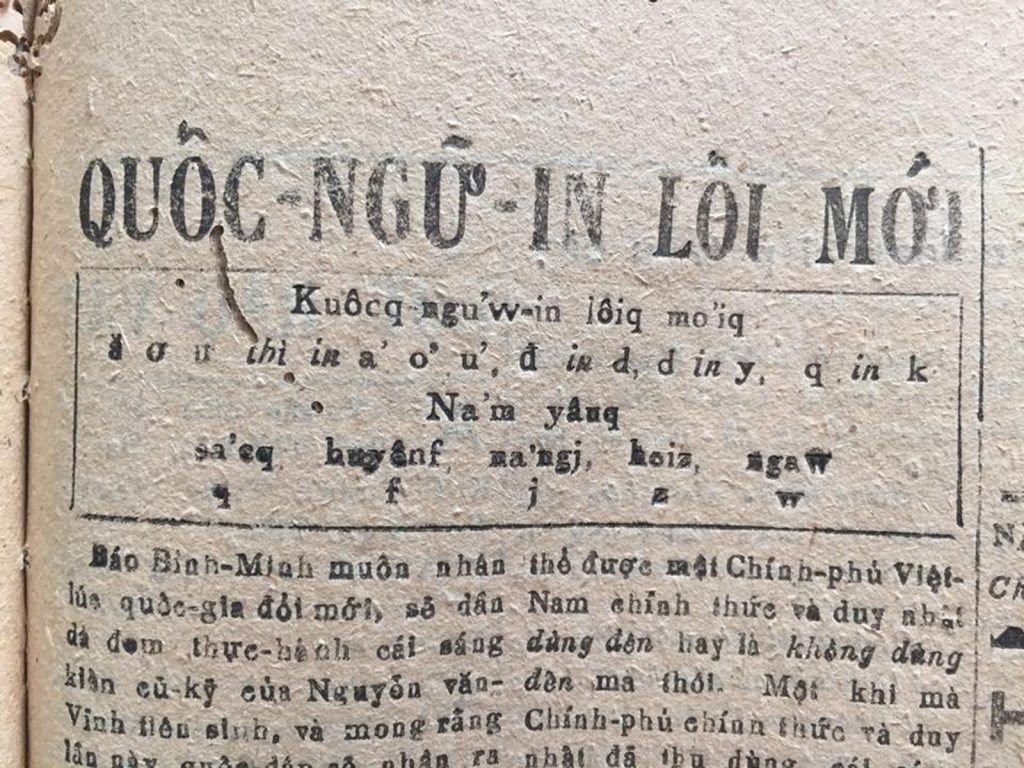 QUỐC-NGỮ-IN LỐI MỚI
Kuôcq-ngu'w-in lôiq mo'iq
ă ơ ư thì in a' o' u', đ in d, d in y, q in k
Na'm yâuq
sa'cq huyênf, na'ngj, hoiz, ngaw
q f j z w
Báo Bình-Minh muốn nhân
lúc quốc-gia đổi mới, sẽ dần
dà đem thực-hành cái sáng
kiến cũ-kỹ của Nguyễn văn-
Vĩnh tiên sinh, và mong rằng
lần này quốc-dân sẽ nhận ra
thể được một Chính-phủ Việt-
Nam chính thức và duy nhất
dùng đến hay là không dùng
đến mà thôi. Một khi mà
Chính-phủ chính thức và duy
nhất đã thu dùng, cái